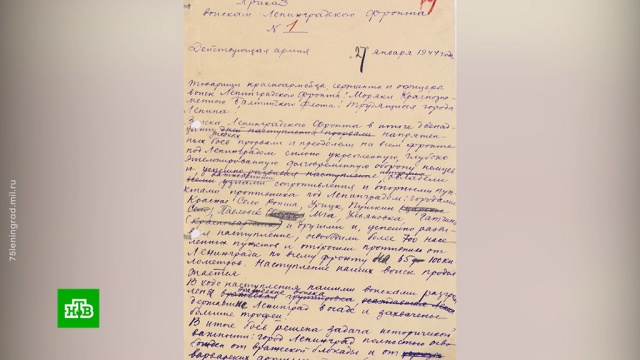 Приказ
войскам Ленинградского фронта
№ 1
Действующая армия 27 января 1944 год
Товарищи красноармейцы, сержанты и офицеры
войск Ленинградского фронта! Моряки Краснозна-
менного Балтийского флота! Трудящиеся города
Ленина!
Войска Ленинградского Фронта в итоге двенад-
цати напряжен-
ных боев прорвали и преодолели на всем фронте
под Ленинградом сильно укрепленную, глубоко
эшелонированную долговременную оборону немцев
и
сопротивления и опорными пун-
ктами противника под Ленинградом: городами
Красное Село, Ропша, Урицк, Пушкин
Павловск Мга, Ульяновка, Гатчина
и другими и, успешно разви-
наступление, освободили более 700 насе-
ленных пунктов и отбросили противника от
Ленинграда по всему фронту на 65 100 ки-
лометров. Наступление наших войск продол-
жается.
В ходе наступления нашими войсками
державшие Ленинград в осаде и захвачены
большие трофеи!
В итоге боев решена задача исторической
важности: город Ленинград полностью осво-
божден от вражеской блокады и от
варварских
75leningrad.mil.ru
НТВ